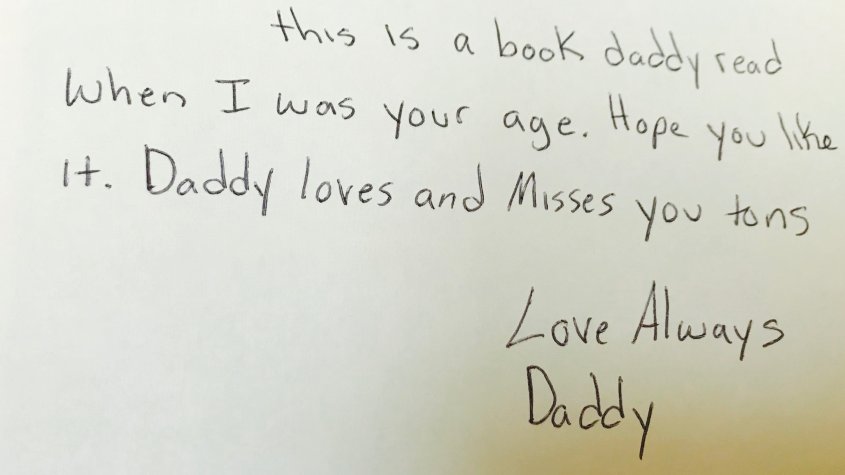 this is a book daddy read
When I was your age. Hope you like
it. Daddy loves and Misses you tons
Love Always
Daddy